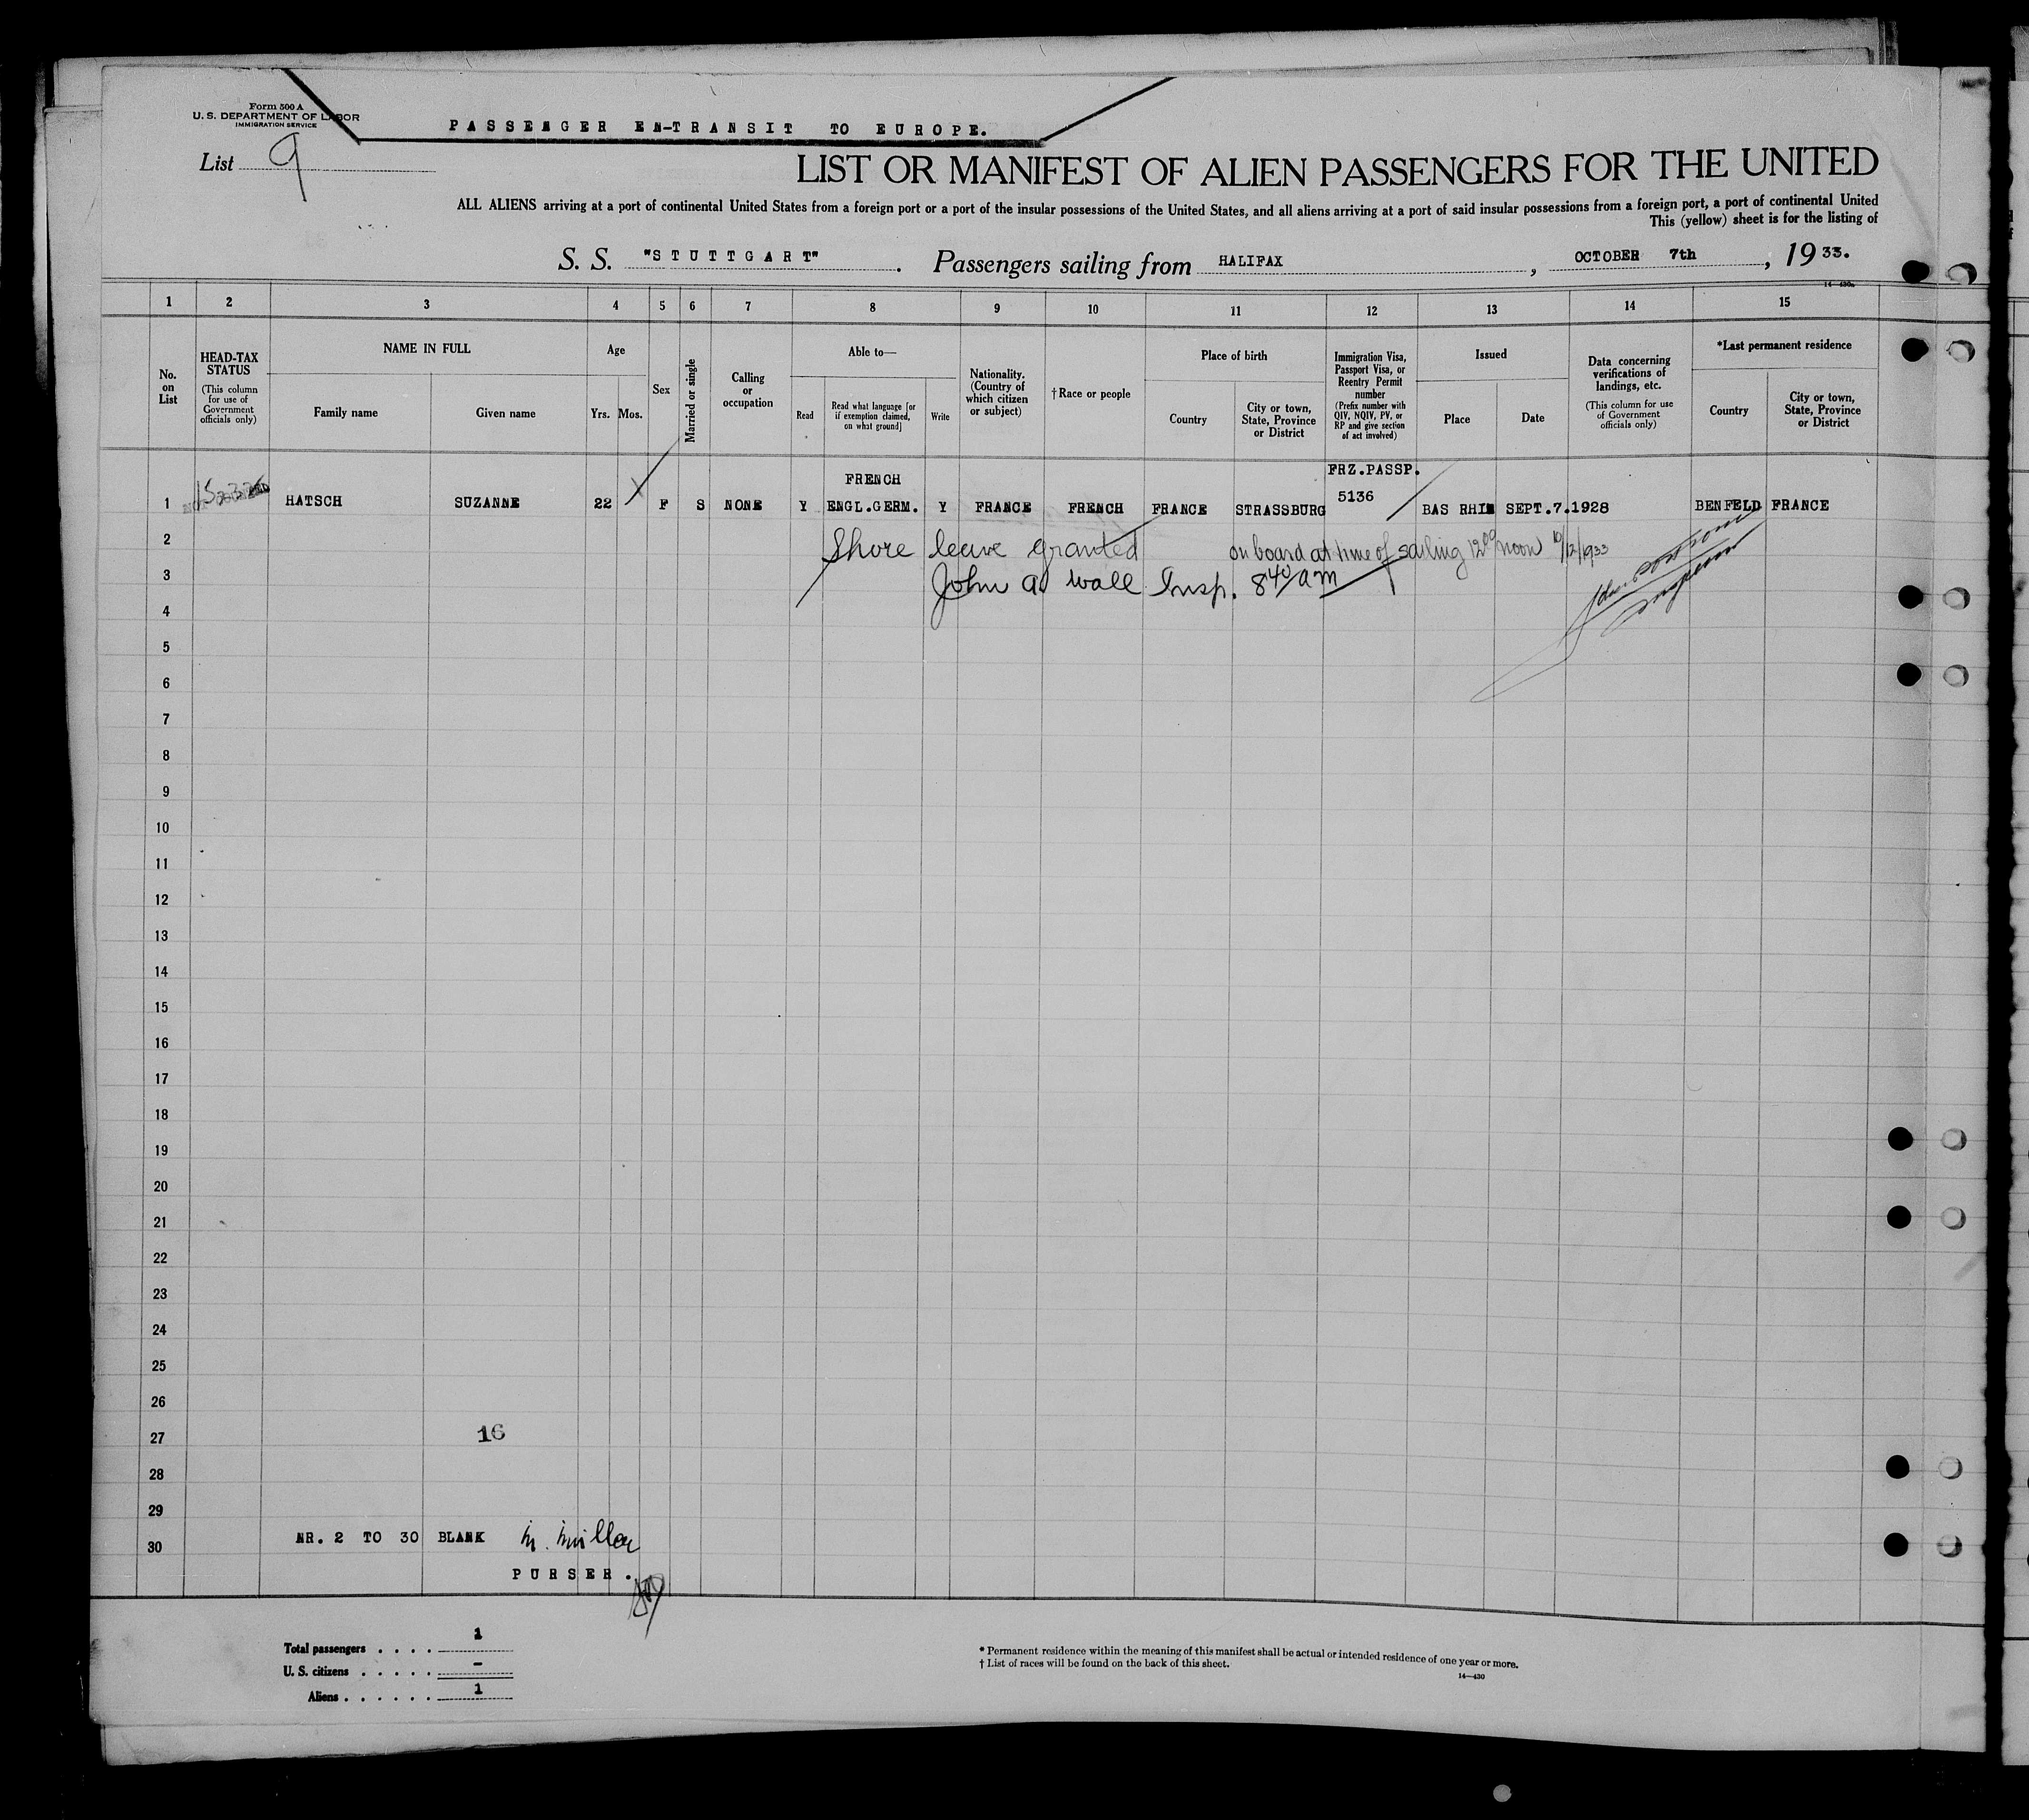 Form 500 A
U. S. DEPARTMENT OF LABOR
IMMIGRATION SERVICE
PASSENGER EN-TRANSIT TO EUROPE.
List 9
LIST OR MANIFEST OF ALIEN PASSENGERS FOR THE UNITED
ALL ALIENS arriving at a port of continental United States from a foreign port or a port of the insular possessions of the United States, and all aliens arriving at a port of said insular possessions from a foreign port, a port of continental United
This (yellow) sheet is for the listing of
S. S. "STUTTGART" . Passengers sailing from HALIFAX , OCTOBER 7th , 19 33.
14-430a
1 2 3 4 5 6 7 8 9 10 11 12 13 14 15
No. on List
HEAD-TAX STATUS (This column for use of Government officials only)
NAME IN FULL
Family name Given name
Age
Yrs. Mos.
Sex
Married or single
Calling or occupation
Able to—
Read
Read what language [or if exemption claimed, on what ground]
Write
Nationality. (Country of which citizen or subject)
†Race or people
Place of birth
Country
City or town, State, Province or District
Immigration Visa, Passport Visa, or Reentry Permit number (Prefix number with QIV, NQIV, PV, or RP and give section of act involved)
Issued
Place Date
Data concerning verifications of landings, etc. (This column for use of Government officials only)
*Last permanent residence
Country
City or town, State, Province or District
FRENCH FRZ.PASSP.
1 HATSCH SUZANNE 22 F S NONE Y ENGL.GERM. Y FRANCE FRENCH FRANCE STRASSBURG 5136 BAS RHIN SEPT.7.1928 BENFELD FRANCE
2 Shore leave granted on board at time of sailing 12 00 noon 10/12/1933
3 John A. Wall Insp. 8 40/am
4
5
6
7
8
9
10
11
12
13
14
15
16
17
18
19
20
21
22
23
24
25
26
27 16
28
29
30 NR. 2 TO 30 BLANK
PURSER.
Total passengers . . . . 1
U. S. citizens . . . . . -
Aliens . . . . . . 1
* Permanent residence within the meaning of this manifest shall be actual or intended residence of one year or more.
† List of races will be found on the back of this sheet.
14—430